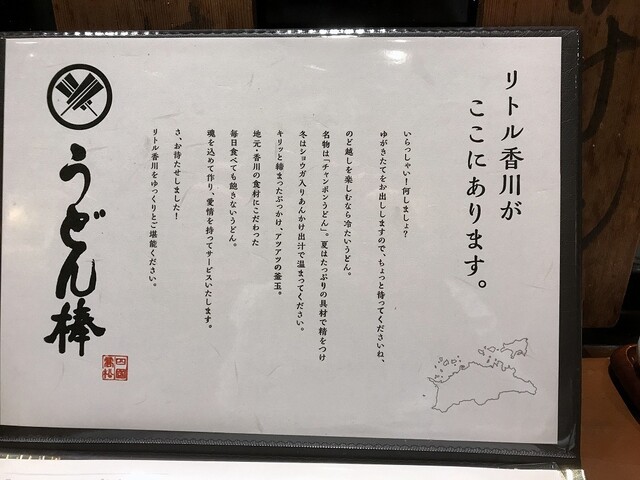 リトル香川が
ここにあります。
いらっしゃい！何しましょ？
ゆがきたてをお出ししますので、ちょっと待ってくださいね、
のど越しを楽しむなら冷たいうどん。
名物は「チャンポンうどん」。夏はたっぷりの具材で精をつけ
冬はショウガ入りあんかけ出汁で温まってください。
キリッと締まったぶっかけ、アツアツの釜玉。
地元・香川の食材にこだわった
毎日食べても飽きないうどん。
魂を込めて作り、愛情を持ってサービスいたします。
さ、お待たせしました！
リトル香川をゆっくりとご堪能ください。
うどん棒
四国